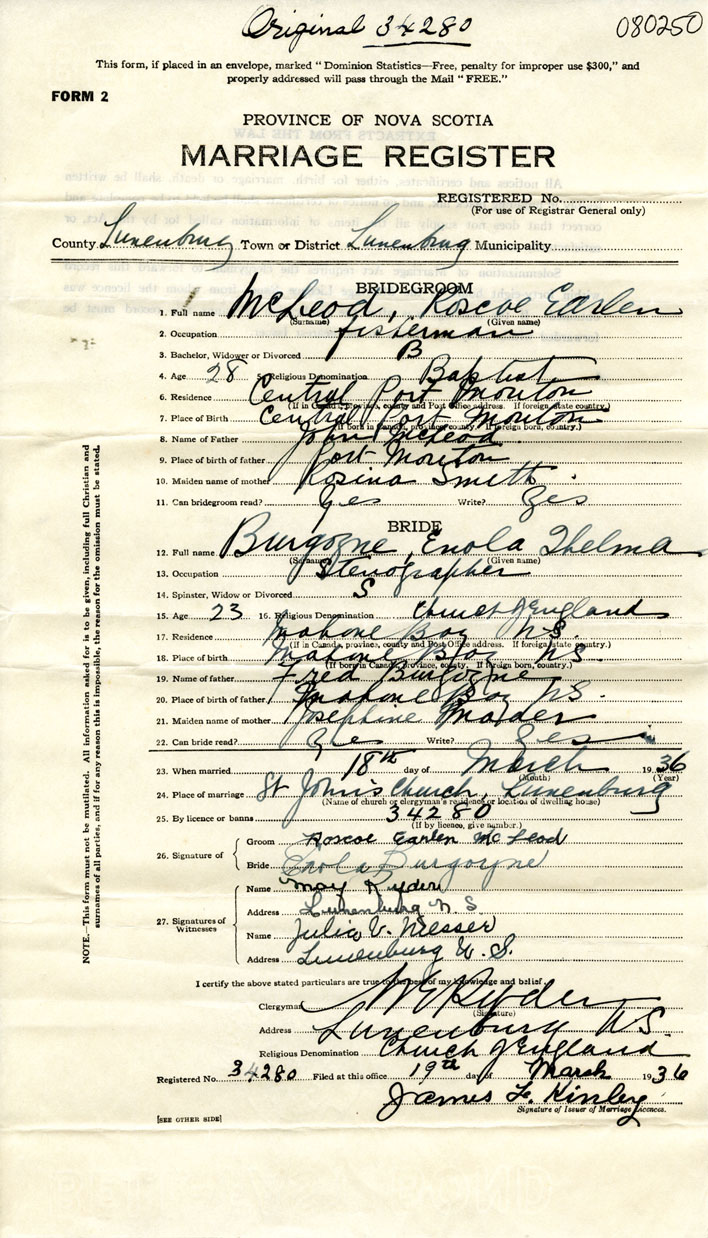 Original 34280
080250
This form, if placed in an envelope, marked "Dominion Statistics—Free, penalty for improper use $300," and
properly addressed will pass through the Mail "FREE."
FORM 2
PROVINCE OF NOVA SCOTIA
MARRIAGE REGISTER
REGISTERED No.
(For use of Registrar General only)
County Lunenburg Town or District Lunenburg Municipality
BRIDEGROOM
1. Full name McLeod, Roscoe Earlen
(Surname) (Given name)
2. Occupation fisherman
3. Bachelor, Widower or Divorced B
4. Age 28 5. Religious Denomination Baptist
6. Residence Central Port Mouton
(If in Canada, province, county and Post Office address. If foreign, state country.)
7. Place of Birth Central Port Mouton
(If born in Canada, province, county. If foreign born, country.)
8. Name of Father John McLeod
9. Place of birth of father Port Mouton
10. Maiden name of mother Rosina Smith
11. Can bridegroom read? Yes Write? Yes
BRIDE
12. Full name Burgoyne, Enola Thelma
(Surname) (Given name)
13. Occupation Stenographer
14. Spinster, Widow or Divorced S
15. Age 23 16. Religious Denomination Church of England
17. Residence Mahone Bay N.S.
(If in Canada, province, county and Post Office address. If foreign, state country.)
18. Place of birth Mahone Bay N.S.
(If born in Canada, province, county. If foreign born, country.)
19. Name of father Fred Burgoyne
20. Place of birth of father Mahone Bay N.S.
21. Maiden name of mother Josephine Mader
22. Can bride read? Yes Write? Yes
23. When married 18th day of March 1936
(Month) (Year)
24. Place of marriage St John's Church, Lunenburg
(Name of church or clergyman's residence or location of dwelling house)
25. By licence or banns 34280
(If by licence, give number.)
26. Signature of
Groom Roscoe Earlen McLeod
Bride Enola Burgoyne
27. Signatures of Witnesses
Name May Ryder
Address Lunenburg N S
Name Julia V. Nesser
Address Lunenburg N.S.
I certify the above stated particulars are true to the best of my knowledge and belief.
Clergyman W E Ryder
(Signature)
Address Lunenburg N.S.
Religious Denomination Church of England
Registered No. 34280 Filed at this office 19th day of March 1936
James L. Kinley
Signature of Issuer of Marriage Licences.
[SEE OTHER SIDE]
NOTE.—This form must not be mutilated. All information asked for is to be given, including full Christian and
surnames of all parties, and if for any reason this is impossible, the reason for the omission must be stated.